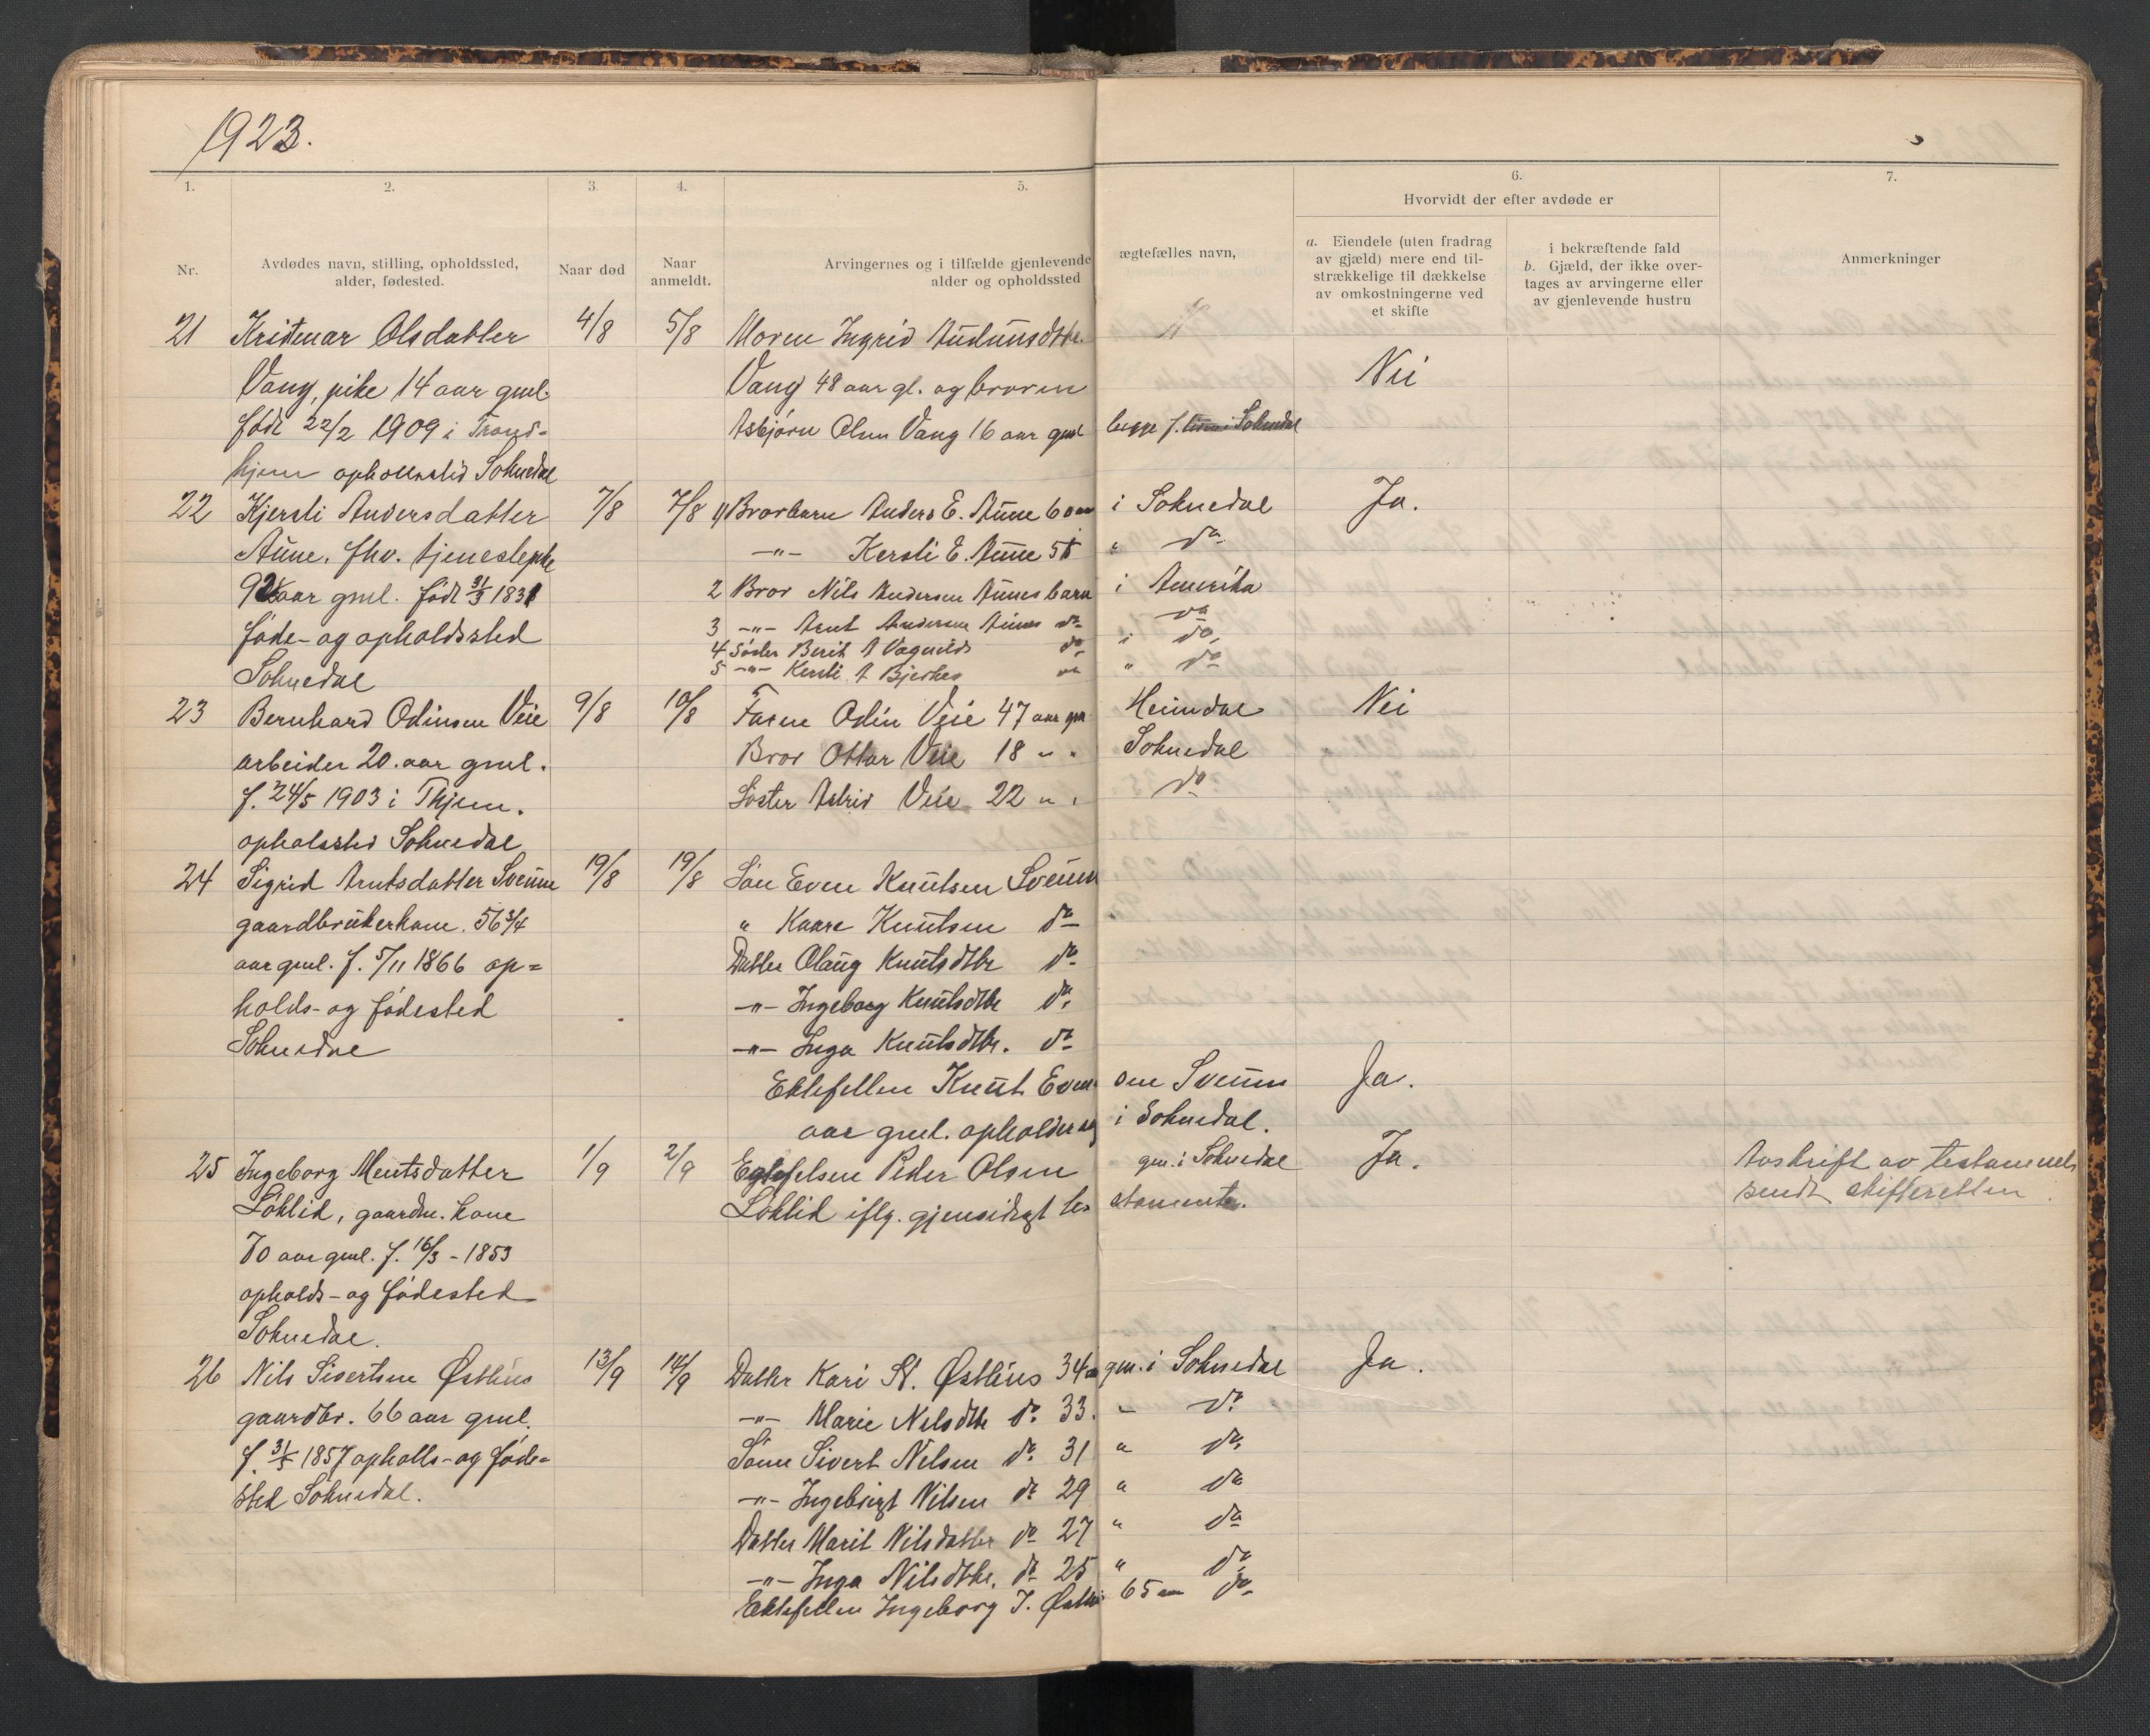 1923.
1. 2. 3. 4. 5. 6. 7.
Hvorvidt der efter avdøde er
Nr.
Avdødes navn, stilling, opholdssted,
alder, fødested.
Naar død
Naar
anmeldt.
Arvingernes og i tilfælde gjenlevende ægtefælles navn,
alder og opholdssted
a. Eiendele (uten fradrag
av gjæld) mere end til-
strækkelige til dækkelse
av omkostningerne ved
et skifte
i bekræftende fald
b. Gjæld, der ikke over-
tages av arvingerne eller
av gjenlevende hustru
Anmerkninger
21 Olsdatter 4/8 5/8 Moren Ingrid
Vang, pike 14 aar gml. Vang 48 aar gl. og broren Nei
født 22/2 1909 i Trond- Asbjørn Olsen Vang 16 aar gml begge f. Soknedal
hjem Soknedal
22 Kjersti Andersdatter 7/8 7/8 1) Brorbarn Anders E. Aune 60 aar i Soknedal Ja.
Aune. fhv. tjenestepike -"- Kersti E. Aune " do
aar gml. født 31/3 1831 2 Bror Nils Andersen Aunes barn i Amerika
føde- og opholdssted 3 -"- Arnt Andersen Aunes do do
4 Søster Berit A Vagnild do " do
Soknedal 5 -"- Kersti A Bjerkes do " do
23 Bernhard Odinsen Veie 9/8 10/8 Faren Odin Veie 47 aar gm Heimdal Nei
arbeider 20. aar gml. Bror Ottar Veie 18 " " Soknedal
f. 24/5 1903 i Thjem. Søster Astrid Veie 22 " " do
opholdssted Soknedal
24 Sigrid Arntsdatter Svenna 19/8 19/8 Søn Even Knutsen Svenna
gaardbrukerkone. 56 3/4 " Kaare Knutsen do
aar gml. f. 5/11 1866 op= Datter Olaug Knutsdtr do
holds- og fødested -"- Ingeborg Knutsdtr do
Soknedal -"- Inga Knutsdtr. do
Ektefellen Knut Evensen Ja.
aar gml. opholder seg i Soknedal.
25 Ingeborg Mentsdatter 1/9 2/9 Egtefelsen Peder Olsen gm. i Soknedal Ja. Avskrift av testamenet
Løklid, gaardm. kone Løklid iflg. gjensidigt testamente. sendt skifteretten.
70 aar gml. f. 16/3 - 1853
opholds- og fødested
Soknedal.
26 Nils Sivertsen Østhus 13/9 14/9 Datter Kari St. Østhus 34 gm. i Soknedal Ja.
gaardbr. 66 aar gml. -"- Marie Nelsdtr do 33. " do
f. 1857 opholds- og føde= Sønn Sivert Nelsen do 31 " do
sted Soknedal. -"- Ingebrigt Nilsen do 29 " do
Datter Marit Nilsdatter do 27 " do
-"- Inga Nilsdtr. do 25 " do
Ektefellen Ingeborg J. Østhus 65 aar do